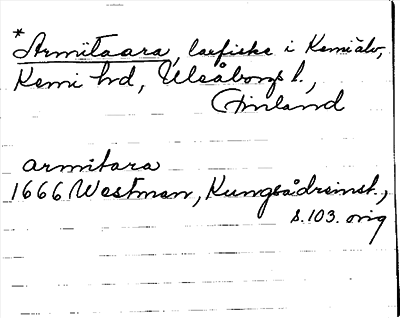 *Armitaara, laxfiske i Kemi älv,
Kemi hd, Uleåborgs l.,
Finland
armitara
1666 Westman, Kungsådreinst.,
s. 103. orig